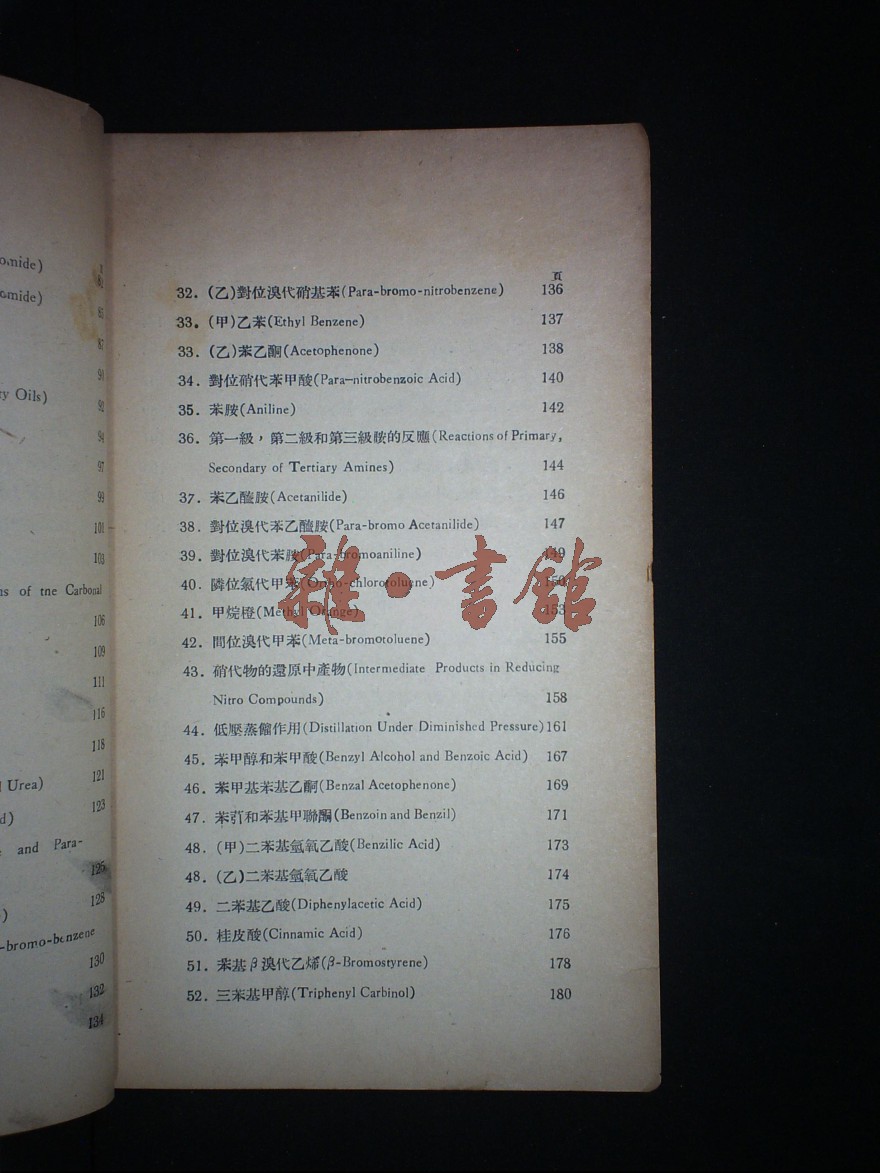 omide)
omide)
85
87
90
ty Oils)
92
94
97
99
101
103
ns of the Carbonal
106
109
111
116
118
121
Urea)
123
d)
and Para-
125
128
)
-bromo-benzene
130
132
134
頁
32. (乙)對位溴代硝基苯(Para-bromo-nitrobenzene) 136
33. (甲)乙苯(Ethyl Benzene) 137
33. (乙)苯乙酮(Acetophenone) 138
34. 對位硝代苯甲酸(Para-nitrobenzoic Acid) 140
35. 苯胺(Aniline) 142
36. 第一級，第二級和第三級胺的反應(Reactions of Primary,
Secondary of Tertiary Amines) 144
37. 苯乙醯胺(Acetanilide) 146
38. 對位溴代苯乙醯胺(Para-bromo Acetanilide) 147
39. 對位溴代苯胺(Para-bromoaniline) 149
40. 隣位氯代甲苯(Ortho-chlorotoluene) 150
41. 甲烷橙(Methyl Orange) 153
42. 間位溴代甲苯(Meta-bromotoluene) 155
43. 硝代物的還原中產物(Intermediate Products in Reducing
Nitro Compounds) 158
44. 低壓蒸餾作用(Distillation Under Diminished Pressure) 161
45. 苯甲醇和苯甲酸(Benzyl Alcohol and Benzoic Acid) 167
46. 苯甲基苯基乙酮(Benzal Acetophenone) 169
47. 苯引和苯基甲聯酮(Benzoin and Benzil) 171
48. (甲)二苯基氫氧乙酸(Benzilic Acid) 173
48. (乙)二苯基氫氧乙酸 174
49. 二苯基乙酸(Diphenylacetic Acid) 175
50. 桂皮酸(Cinnamic Acid) 176
51. 苯基β溴代乙烯(β-Bromostyrene) 178
52. 三苯基甲醇(Triphenyl Carbinol) 180
雜·書館